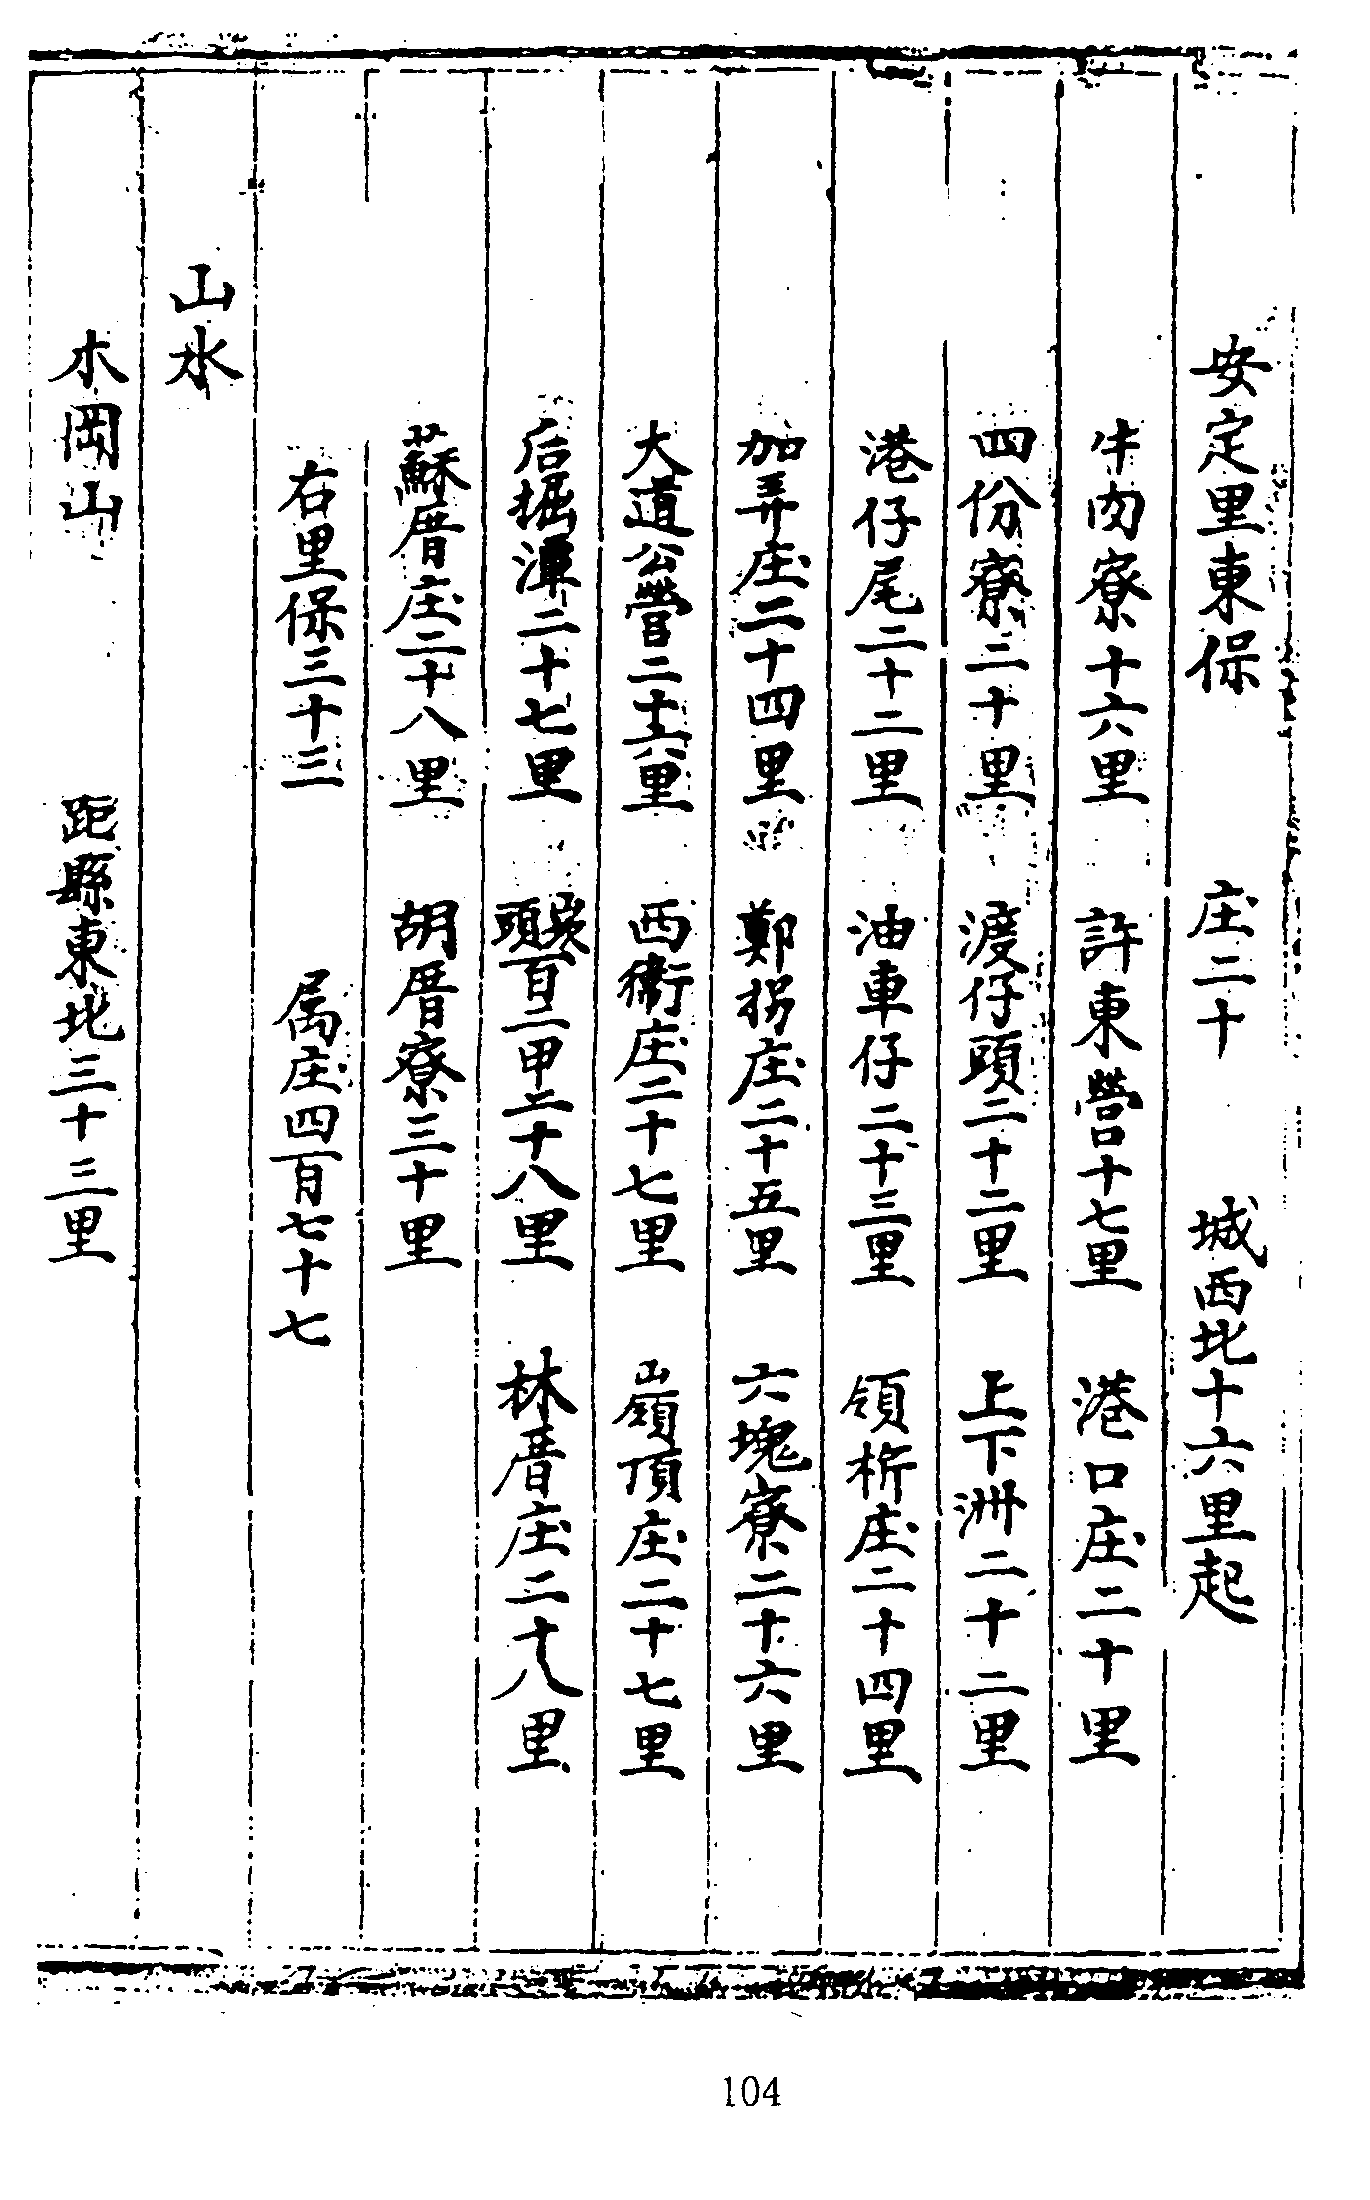 安定里東保　庄二十　城西北十六里起
牛肉寮十六里　許東營十七里　港口庄二十里
四份寮二十里　渡仔頭二十二里　上下洲二十二里
港仔尾二十二里　油車仔二十三里　領析庄二十四里
加弄庄二十四里　鄭拐庄二十五里　六塊寮二十六里
大道公營二十六里　西衛庄二十七里　嶺頂庄二十七里
后掘潭二十七里　崁頭百二甲二十八里　林厝庄二十八里
蘇厝庄二十八里　胡厝寮三十里
右里保三十三　属庄四百七十七
山水
木岡山　距縣東北三十三里
104